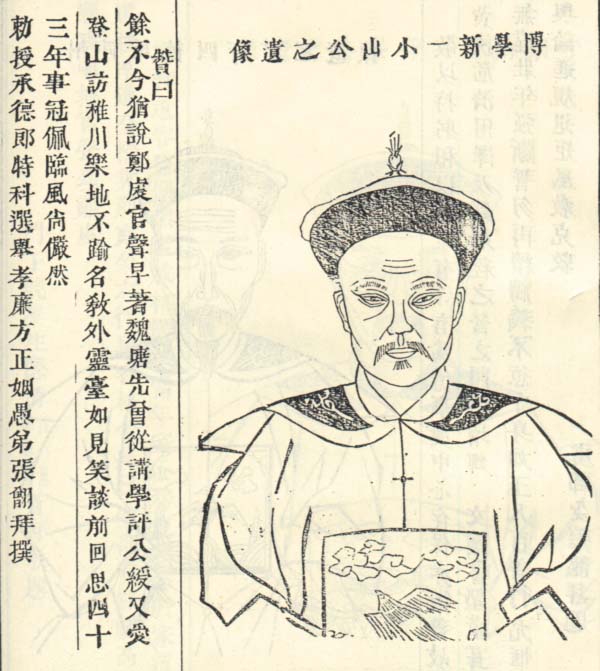 博學新一小山公之遺像
贊曰
餘不今猶說鄭虔官聲早著魏塘先曾從講學評公緩又愛
登山訪稚川樂地不踰名教外靈臺如見笑談前回思四十
三年事冠佩臨風尙儼然
勅授承德郎特科選舉孝廉方正姻愚弟張拜撰